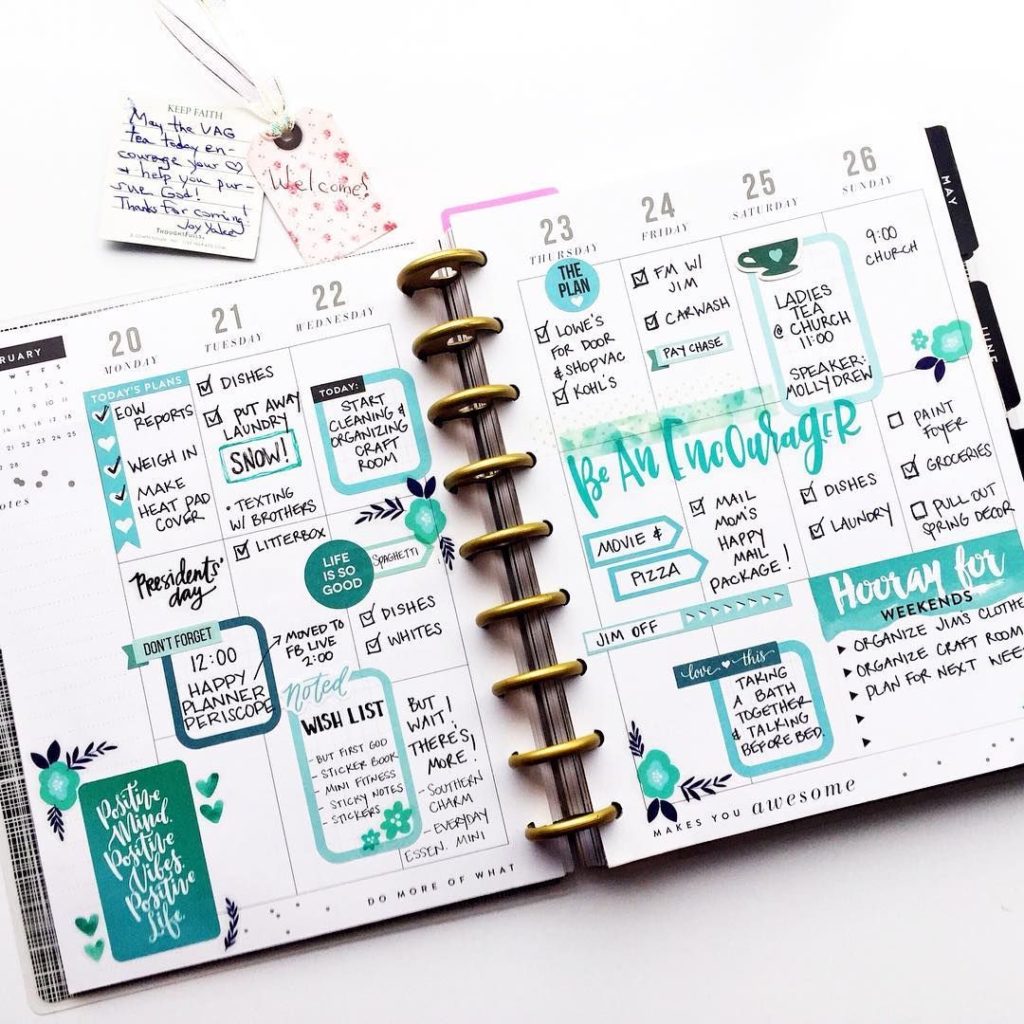 KEEP FAITH
May the VAG
tea today en-
courage your ♡
+ help you pur-
sue God!
Thanks for coming!
THOUGHTFULLS
Welcome!
RUARY
W T F S
Notes
20
MONDAY
TODAY'S PLANS
EOW
REPORTS
WEIGH IN
MAKE
HEAT PAD
COVER
Presidents'
day
DON'T FORGET
12:00
HAPPY
PLANNER
PERISCOPE
Positive
Mind.
Positive
Vibes.
Positive
Life.
21
TUESDAY
DISHES
PUT AWAY
LAUNDRY
SNOW!
• TEXTING
W/ BROTHERS
LITTERBOX
MOVED TO
FB LIVE
2:00
Noted
WISH LIST
- BUT FIRST GOD
- STICKER BOOK
- MINI FITNESS
- STICKY NOTES
- STICKERS
22
WEDNESDAY
TODAY:
START
CLEANING &
ORGANIZING
CRAFT
ROOM
LIFE
IS SO
GOOD
SPAGHETTI
DISHES
WHITES
BUT
WAIT!
THERE'S
MORE!
- SOUTHERN
CHARM
- EVERYDAY
ESSEN. MINI
DO MORE OF WHAT
23
THURSDAY
THE
PLAN
LOWE'S
FOR DOOR
& SHOPVAC
KOHL'S
BE AN ENCOURAGER
MOVIE &
PIZZA
JIM OFF
24
FRIDAY
FM W/
JIM
CARWASH
PAY CHASE
MAIL
MOM'S
HAPPY
MAIL
PACKAGE!
love this
TAKING
A BATH
TOGETHER
& TALKING
BEFORE BED.
25
SATURDAY
LADIES
TEA
@ CHURCH
11:00
SPEAKER:
MOLLY DREW
DISHES
LAUNDRY
26
SUNDAY
9:00
CHURCH
PAINT
FOYER
GROCERIES
PULL OUT
SPRING DECOR
Hooray for
WEEKENDS
ORGANIZE JIM'S CLOTHE
ORGANIZE CRAFT ROOM
PLAN FOR NEXT WEE
MAKES YOU awesome
MAY
JUNE